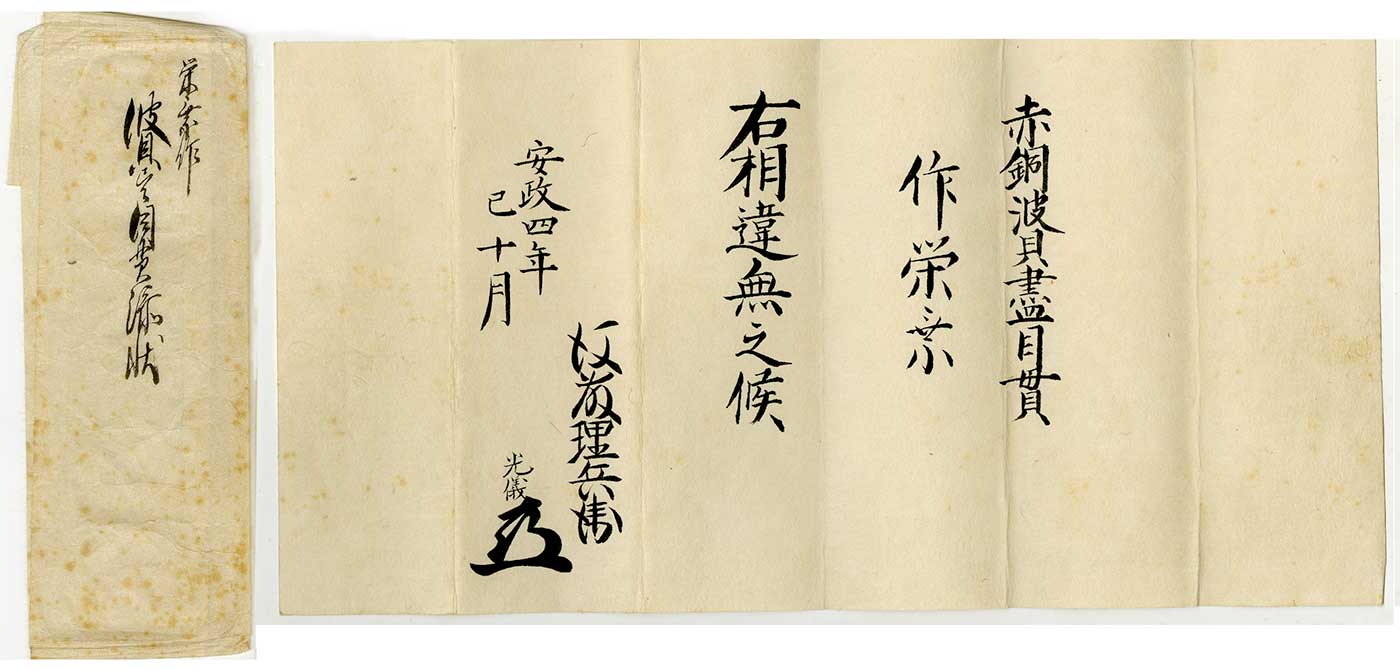 赤銅波貝盡目貫
作栄乗
右相違無之候
安政四年
巳十月
後藤理兵衛
光儀
栄乗作
波貝尽目貫添状